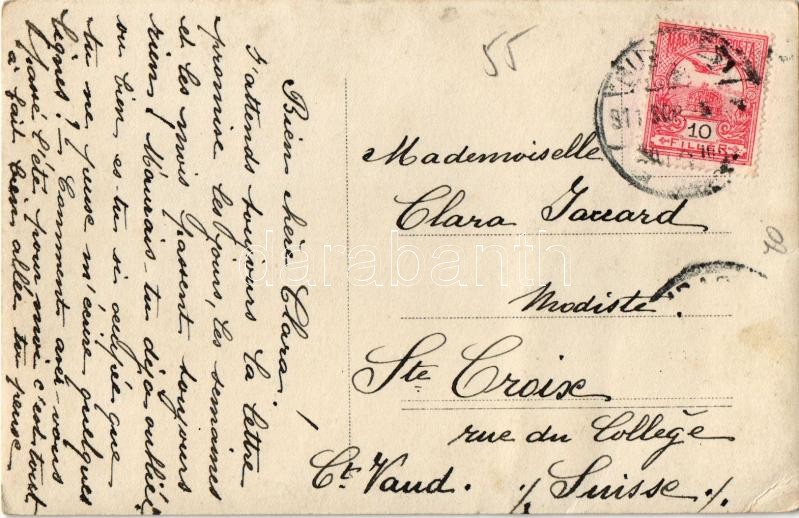 Bien chère Clara!
J'attends toujours la lettre
promise les jours, les semaines
et les mois passent toujours
rien! M'aurais-tu déjà oubliée
ou bien es-tu si occupée que
tu ne puisse m'écrire quelques
lignes? – Comment avez-vous
passé l'été, pour moi c'est tout
à fait bien allée tu pense
55
10
FILLÉR
Mademoiselle
Clara Jaccard
Modiste
Ste Croix
rue du Collège
Ct. Vaud. ./. Suisse ./.
20
darabanth